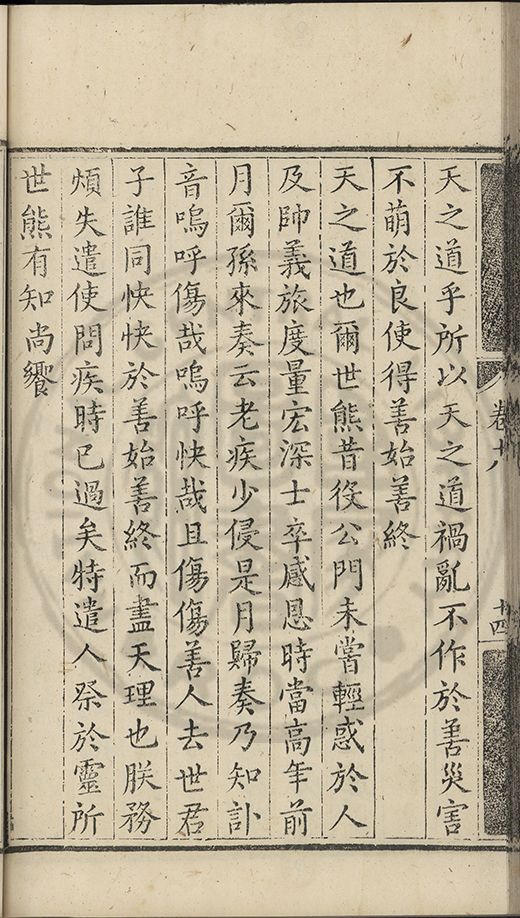 卷十八
十四
天之道乎所以天之道禍亂不作於善災害
不萌於良使得善始善終
天之道也爾世熊昔役公門未嘗輕惑於人
及帥義旅度量宏深士卒感恩時當高年前
月爾孫來奏云老疾少侵是月歸奏乃知訃
音嗚呼傷哉嗚呼快哉且傷傷善人去世君
子誰同快快於善始善終而盡天理也朕務
煩失遣使問疾時已過矣特遣人祭於靈所
世熊有知尚饗